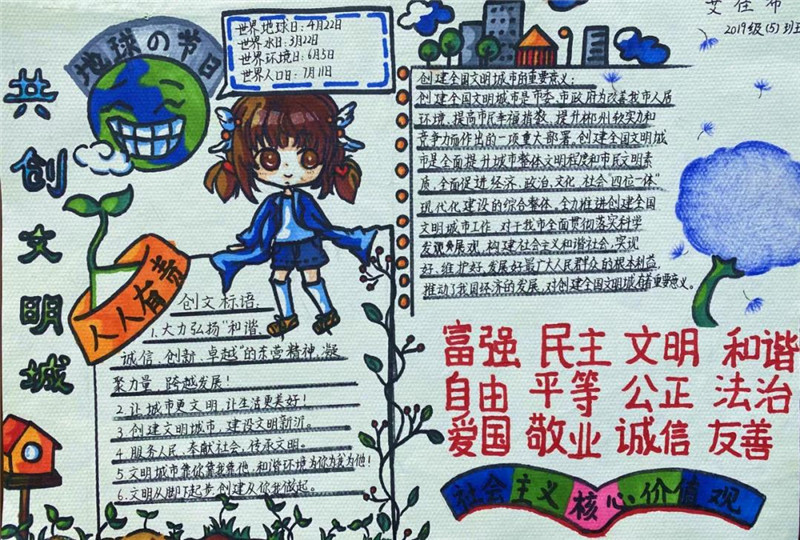 艾佳
2019级(5)班
地球の节日
世界地球日:4月22日
世界水日:3月22日
世界环境日:6月5日
世界人口日:7月11日
共创文明城
人人有责
创建全国文明城市的重要意义:
创建全国文明城市是市委、市政府为改善我市人居
环境、提高市民幸福指数、提升郴州软实力和
竞争力而作出的一项重大部署,创建全国文明城
市是全面提升城市整体文明程度和市民文明素
质,全面促进经济、政治、文化、社会"四位一体"
现代化建设的综合整体,全力推进创建全国
文明城市工作,对于我市全面贯彻落实科学
发展观,构建社会主义和谐社会,实现
好、维护好、发展好最广大人民群众的根本利益,
推动了我国经济的发展,对创建全国文明城有着重要意义。
创文标语
1.大力弘扬"和谐、
诚信、创新、卓越"的东营精神,凝
聚力量,跨越发展!
2.让城市更文明,让生活更美好!
3.创建文明城市,建设文明新沂。
4.服务人民,奉献社会,传承文明。
5.文明城市靠你靠我靠他,和谐环境为你为我为他!
6.文明从脚下起步,创建从你我做起。
富强 民主 文明 和谐
自由 平等 公正 法治
爱国 敬业 诚信 友善
社会主义核心价值观